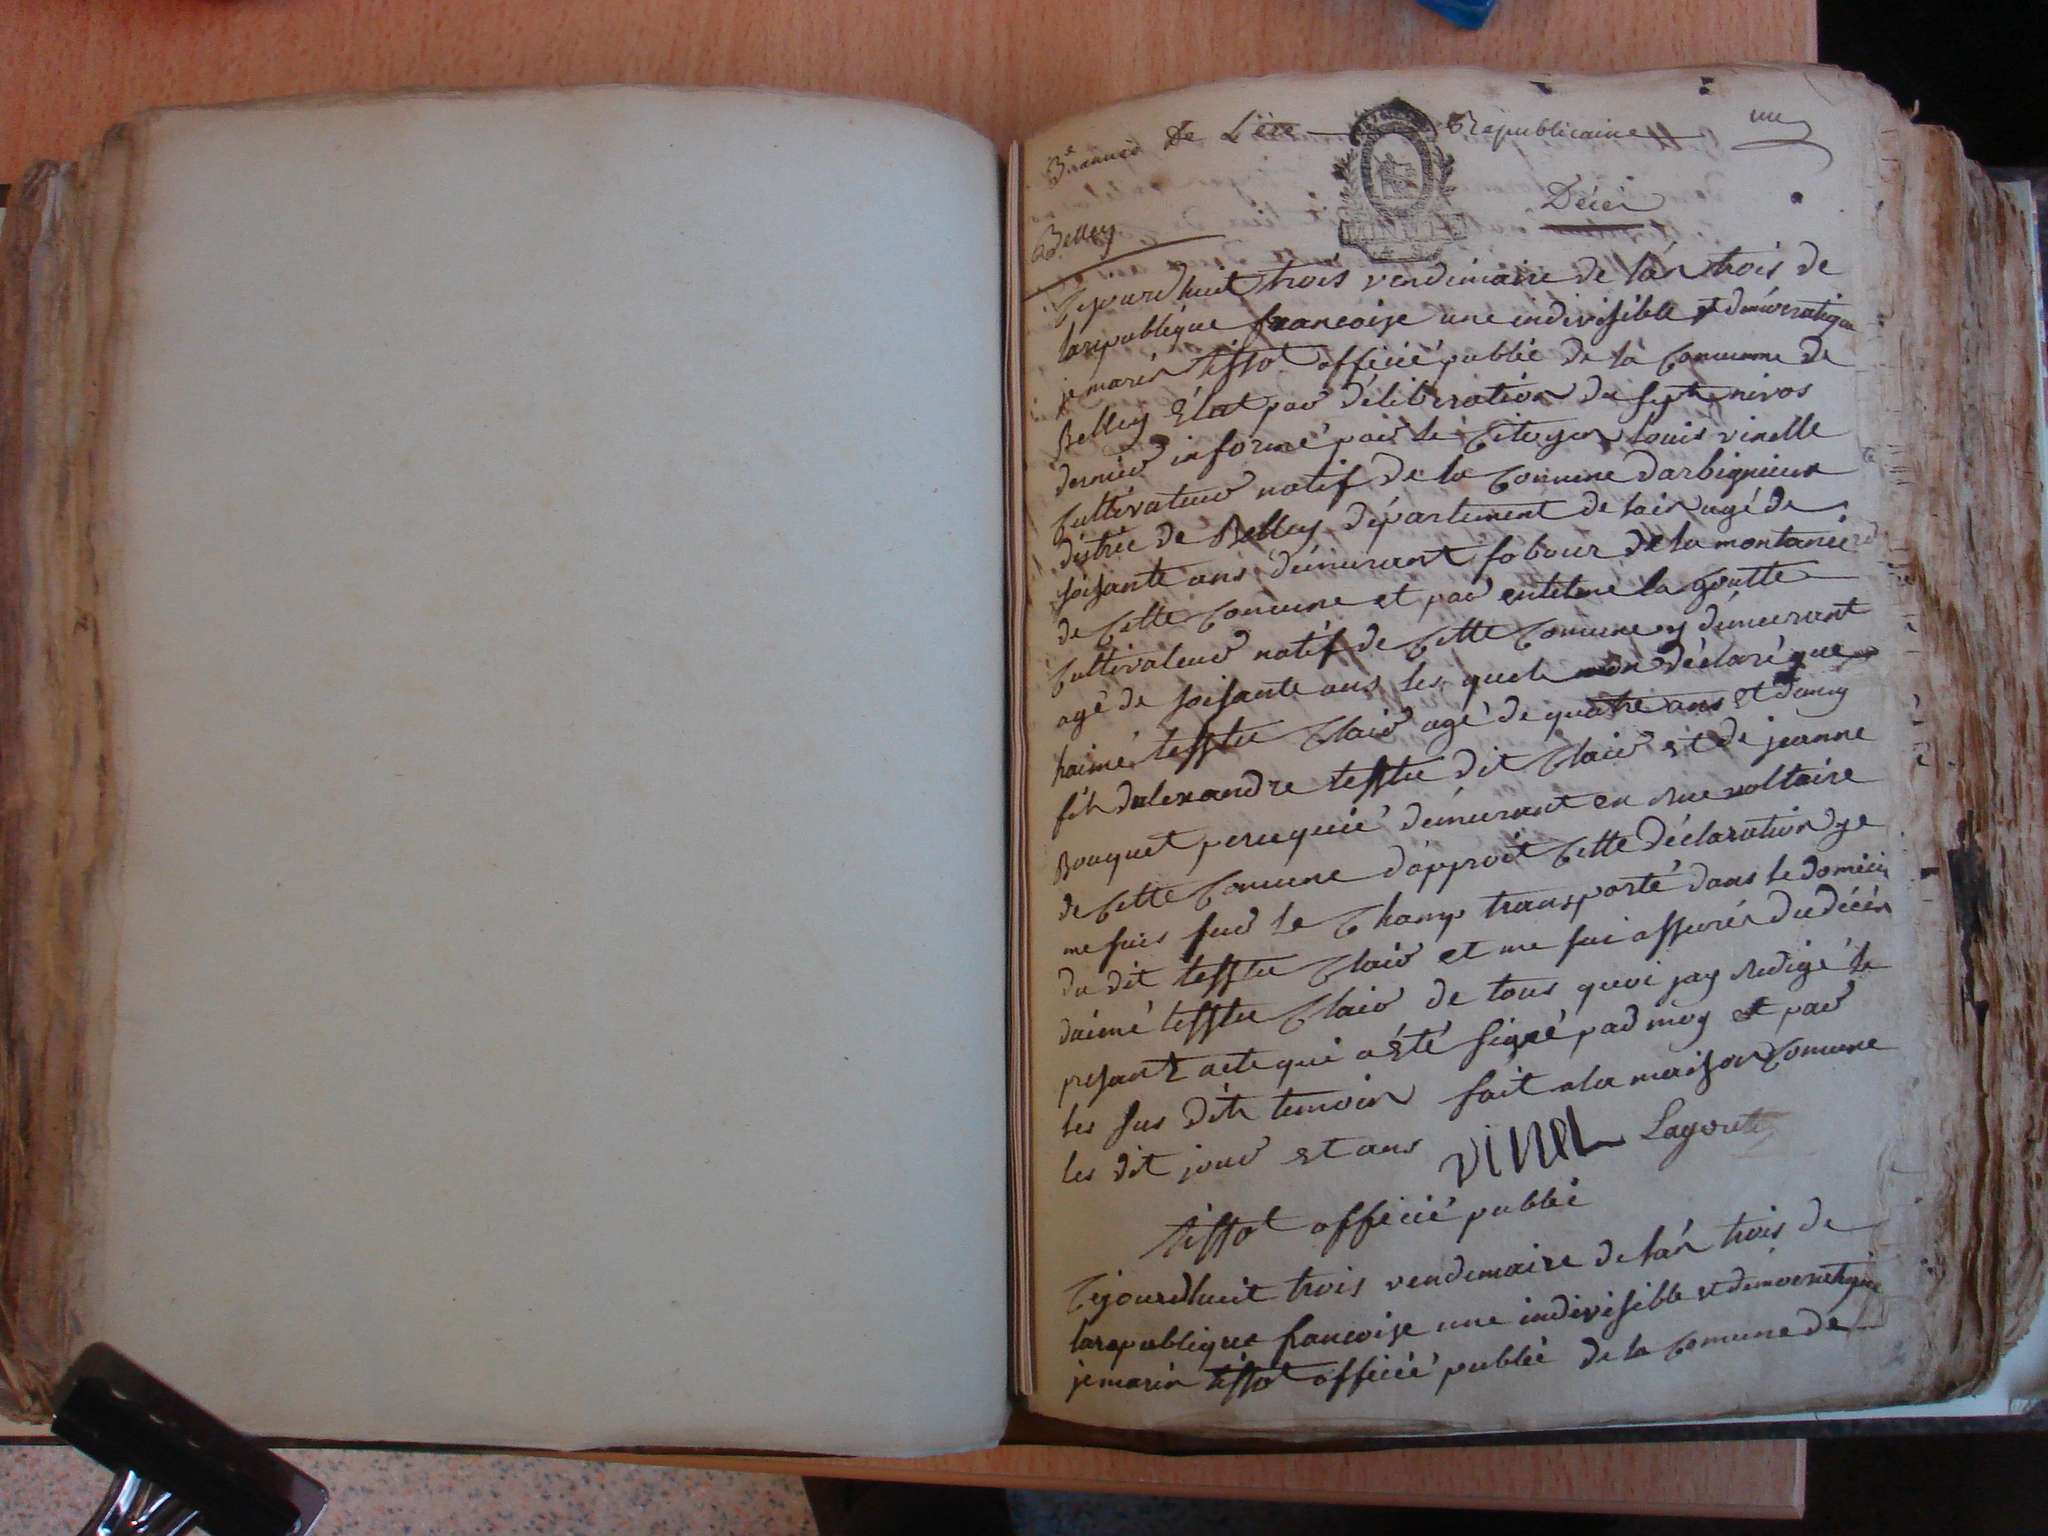 3e année De L'ère Republicaine une
Décei
Belley
Cejourdhuit trois vendimaire de lán trois de
larepublique francoise une indivisible et démocratique
je marin tissot officié public de la Comunne de
Belley Élut par déliberation du septe nivos
dernier informé par le Citoyen louis vinelle
Cultivateur natif de la Comune darbignieux
distric de Belley département de lain agé de
soisante ans démeurant fobour de la montanie
de Cette Comune et par entelme la goutte
Cultivateur natif de Cette Comune y démeurant
agé de soisante ans les quels mon déclaré que
haimé testtu Clair agé de quatre ans et demy
fils dalexandre testtu dit Clair et de jeanne
Bouquet peruquié démeurant en Rue voltaire
de Cette Comune dapproit Cette déclaration je
me suis sur le Champ transporté dans le domicil
du dit testtu Clair et me sui assurér du décés
daimé testtu Clair de tous quoi jay Redigé le
presant acte qui a Été signé par moy et par
les sus dits temoins fait a la maison Comune
les dit jour et ans vinel Lagoute
tissot officié public
Cejourdhuit trois vendemaire de lán trois de
larepublique francoise une indivisible et démocratique
je marin tissot officié public de la Comune de